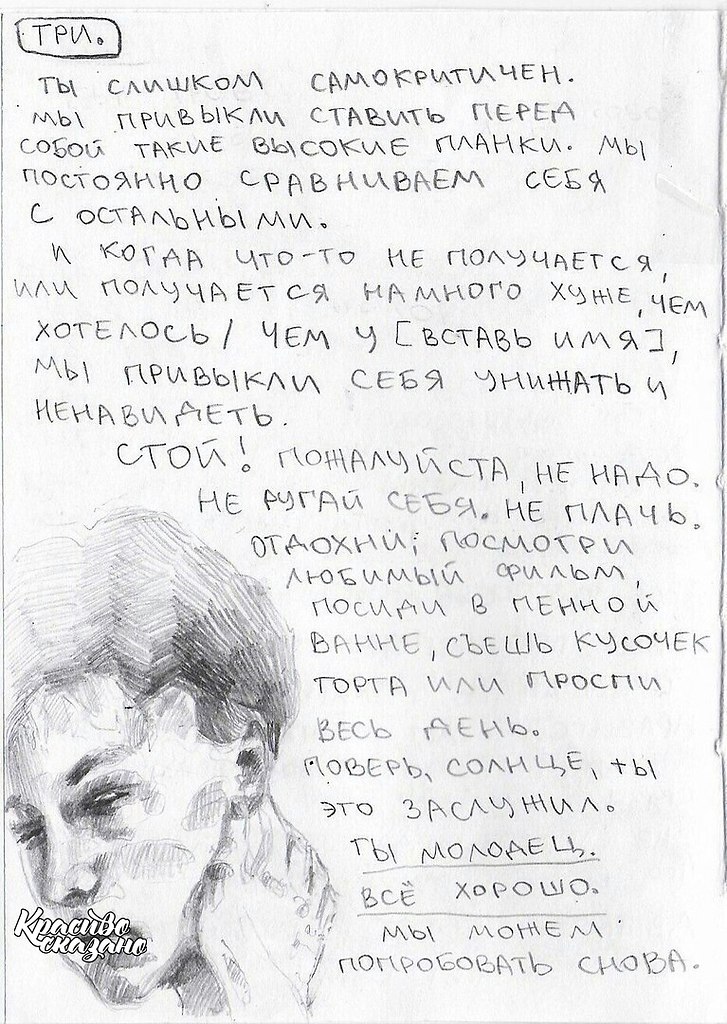 ТРИ.
ТЫ СЛИШКОМ САМОКРИТИЧЕН.
МЫ ПРИВЫКЛИ СТАВИТЬ ПЕРЕД
СОБОЙ ТАКИЕ ВЫСОКИЕ ПЛАНКИ. МЫ
ПОСТОЯННО СРАВНИВАЕМ СЕБЯ
С ОСТАЛЬНЫМИ.
И КОГДА ЧТО-ТО НЕ ПОЛУЧАЕТСЯ,
ИЛИ ПОЛУЧАЕТСЯ НАМНОГО ХУЖЕ, ЧЕМ
ХОТЕЛОСЬ / ЧЕМ У [ВСТАВЬ ИМЯ],
МЫ ПРИВЫКЛИ СЕБЯ УНИЖАТЬ И
НЕНАВИДЕТЬ.
СТОЙ! ПОЖАЛУЙСТА, НЕ НАДО.
НЕ РУГАЙ СЕБЯ. НЕ ПЛАЧЬ.
ОТДОХНИ; ПОСМОТРИ
ЛЮБИМЫЙ ФИЛЬМ,
ПОСИДИ В ПЕННОЙ
ВАННЕ, СЪЕШЬ КУСОЧЕК
ТОРТА ИЛИ ПРОСПИ
ВЕСЬ ДЕНЬ.
ПОВЕРЬ, СОЛНЦЕ, ТЫ
ЭТО ЗАСЛУЖИЛ.
ТЫ МОЛОДЕЦ.
ВСЁ ХОРОШО.
МЫ МОЖЕМ
ПОПРОБОВАТЬ СНОВА.
Красиво
сказано